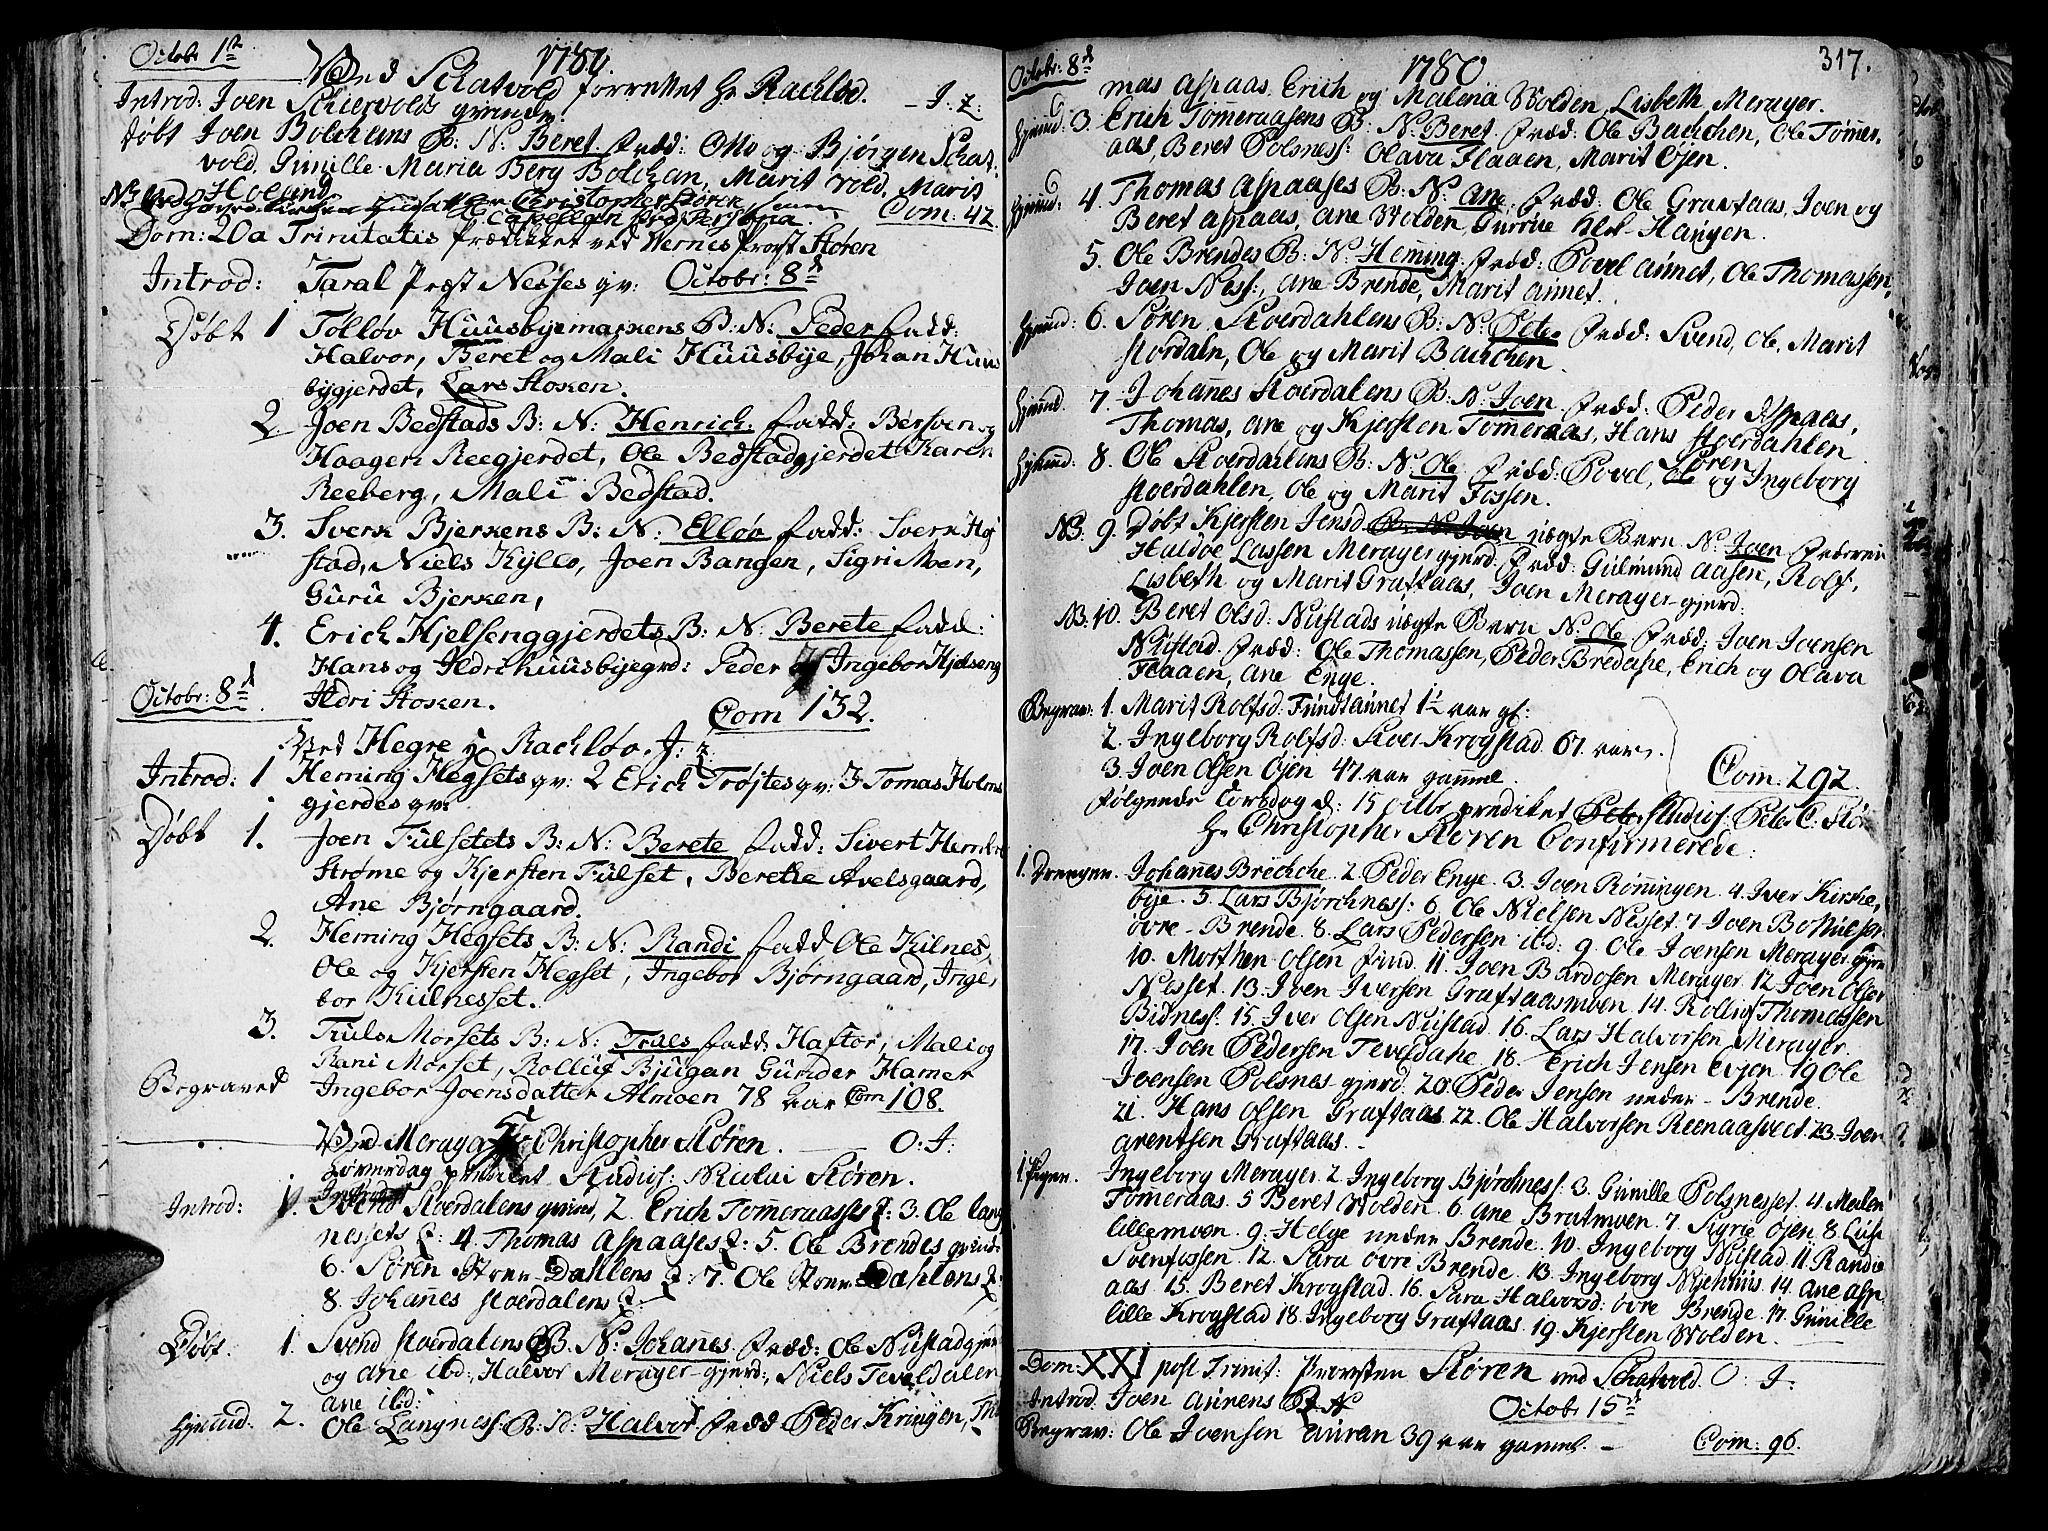 Octobr 1ste
1780.
Ved Schatvold forrettet Hr Rachløv. — J. Z:
Introd: Joen Schiervolds qvinde.
Døbt Joen Bolchans B: N: Beret. Fadd: Otto og Bjørgen Schat-
vold. Gunille Maria Berg Bolchan, Marit Vold. Marit
Hoelund
Christopher Støren
Capellan pro Persona. Com: 42.
Dom: 20a Trinitatis Prædikket ved Vernes Prost Støren
Introd: Taral Præst Nesses qv: Octobr: 8de
Døbt 1 Tolløv Huusbyemarkens B: N: Peder fadd:
Halvor, Beret og Mali Huusbye, Johan Huus
byegjerdet, Lars Stoken.
2. Joen Bedstads B: N: Henrich. fadd: Børsen og
Haagen Reegjerdet, Ole Bedstadgjerdet Karen
Reeberg, Mali Bedstad.
3. Sverk Bjerkens B: N: Elløv fadd: Sverk Hog
stad, Niels Kyllo, Joen Bangen, Sigri Moen,
Guru Bjerken,
4. Erich Kjelsenggjerdets B: N: Berete fadd:
Hans og Ildri huusbyegrd: Peder og Ingebor Kjelseng
Ildri Stoken. Com 132.
Octobr: 8de
Ved Hegre Rachløv. J: Z:
Introd: 1 Heming Hegsets qv: 2 Erich Trøjtes qv: 3 Tomas Holms
gjerdes qv:
Døbt 1. Joen Fulsetets B: N: Berete fadd: Sivert Hembre
Strøme og Kjersten Fulset, Berethe Avelsgaard,
Ane Bjørngaard.
2. Heming Hegsets B: N: Randi fadd Ole Kilnes,
Ole og Kjersten Hegset, Ingebor Bjørngaard, Inge,
bor Kulnesset.
3. Truls Morsets B: N: Trues fadd: Haftor, Mali og
Rani Morset, Rolluf Bjugan Gunder Hamer
Begraved Ingebor Joensdatter Almoen 78 aar Com 108.
Ved Meraga Hr Christopher Støren. — O. J:
Løverdag prædiket Studios: Nicolai Støren.
Introd: 1. Svend Stoerdalens qvinde, 2. Erich Tømeraasses Z: 3. Ole Lang
nessets Z: 4. Thomas Aspaases Z: 5. Ole Brendes qvinde
6. Søren Stoer-Dahlens Z: 7. Ole Stoer-Dahlens Z:
8. Johanes Stoerdalens Z:
Døbt. 1. Svend Stoerdalens B. N: Johanes. Fadd: Ole Nustadgjerd
og Ane ibd:, Halvor Merager-gjerd:, Niels Teveldalen
Ane ibd:
Hjemd: 2. Ole Langness: B: N: Halvor. Fadd Peder Kringen, Tho
Octobr: 8de
1780
317.
mas Aspaas, Erich og Malena Wolden, Lisbeth Merager.
Hjemd: 3. Erich Tømeraasens B: N: Beret. Fadd: Ole Bachen, Ole Tømer-
aas, Beret Polsness: Olava Flaaen, Marit Øjen.
Hjemd: 4. Thomas Aspaases B: N: Ane. Fadd: Ole Graftaas, Joen og
Beret Aspaas, Ane Wolden, Gurrie Hangen.
5. Ole Brendes B: N: Heming. Fadd: Povel Aunet, Ole Thomassen,
Joen Ness:, Ane Brende, Marit Aunet.
Hjemd: 6. Søren Stoerdahlens B: N: Peter Fadd: Svend, Ole, Marit
Stordaln, Ole og Marit Bachen.
Hjemd. 7. Johanes Stoerdalens B: N: Joen. Fadd: Peder Aspaas,
Thomas, Ane og Kjersten Tømeraas, Hans Stoerdahlen
Hjemd: 8. Ole Stoerdahlens B: N: Ole. Fadd: Povel, Søren og Ingeborg
Stoerdahlen, Ole og Marit Fossen.
NB. 9. Døbt Kjersten Jensd uægte Barn N: Joen. Faderen
Haldoe Lassen Meragergjerd. Fadd: Gulmund Aasen, Rolf,
Lisbeth og Marit Graftaas, Joen Merager-gjerd:
NB. 10. Beret Olsd: Nustads uægte Barn N: Ole. Fadd: Joen Joensen
Nustad. Fadd: Ole Thomassen, Peder Bredahe, Erich og Olava
Flaaen, Ane Enge.
Begrav: 1. Marit Rolfsd: Fundtaunet 1½ aar gl:
2. Ingeborg Rolfsd: Stoer Krogstad 67. aar.
3. Joen Olsen Øjen 47. aar gammel. Com: 292.
Følgende Torsdag d: 15 octbr prediket Studios: Peter C: Stø
Hr Christopher Støren Confirmerede:
1. Drengen. Johanes Breckche. 2 Peder Enge. 3. Joen Røningen. 4. Iver Kirke,
bye. 5. Lars Bjørchness: 6. Ole Nielsen Nesset. 7 Joen Bottulsen
øvre-Brende. 8. Lars Pedersen ibd: 9. Ole Joensen Merager-gjerd
10. Morthen Olsen Fund. 11. Joen Bardosen Merager. 12 Joen Olsen
Nesset. 13. Joen Iversen Graftaasmoen. 14. Rolluf Thomassen
Bidness. 15 Iver Olsen Nustad. 16. Lars Halvorsen Merager.
17. Joen Pedersen Teveldahe. 18. Erich Jensen Evjen. 19 Ole
Joensen Polsnes-gjerd. 20 Peder Jensen neder-Brende.
21. Hans Olsen Graftaas. 22. Ole Halvorsen Reenaasvect. 23. Joen
Arentsen Graftaas.
1. Pigen. Ingeborg Merager. 2 Ingeborg Bjørchness: 3. Gunille Polsnesset. 4. Malen
Tømeraas. 5 Beret Wolden. 6. Ane Bratmoen. 7. Sigrie Øjen. 8. Lusi
lillemoen. 9. Helge neder Brende. 10. Ingeborg Nustad. 11. Randie
Svenfossen. 12. Sara øvre Brende. 13. Ingeborg Nyehuus. 14. Ane Asp-
aas 15. Beret Krogstad. 16. Sara Halvorsd: øvre Brende. 17. Gunille
lille Krogstad 18. Ingeborg Graftaas. 19. Kjersten Wolden.
Dom: XXI post Trinit: Provsten Støren ved Schatvold. O: J.
Introd. Joen Aurens Octobr 15de
Begrav: Ole Joensen Auran 39 aar gammel. — Com: 96.